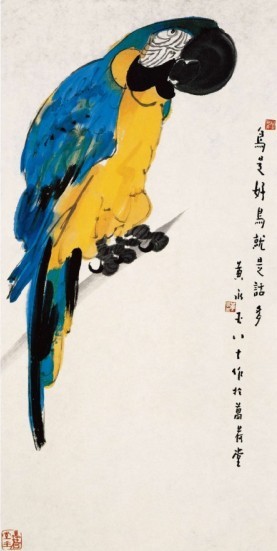 鸟是好鸟就是話多
黄永玉八十作於萬荷堂